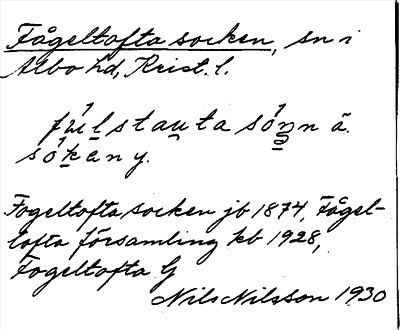 Fågeltofta socken, sn i
Albo hd, Krist. l.
sókàny.
Fogeltofta socken jb 1874, Fågel-
tofta församling kb 1928,
Fogeltofta G
Nils Nilsson 1930